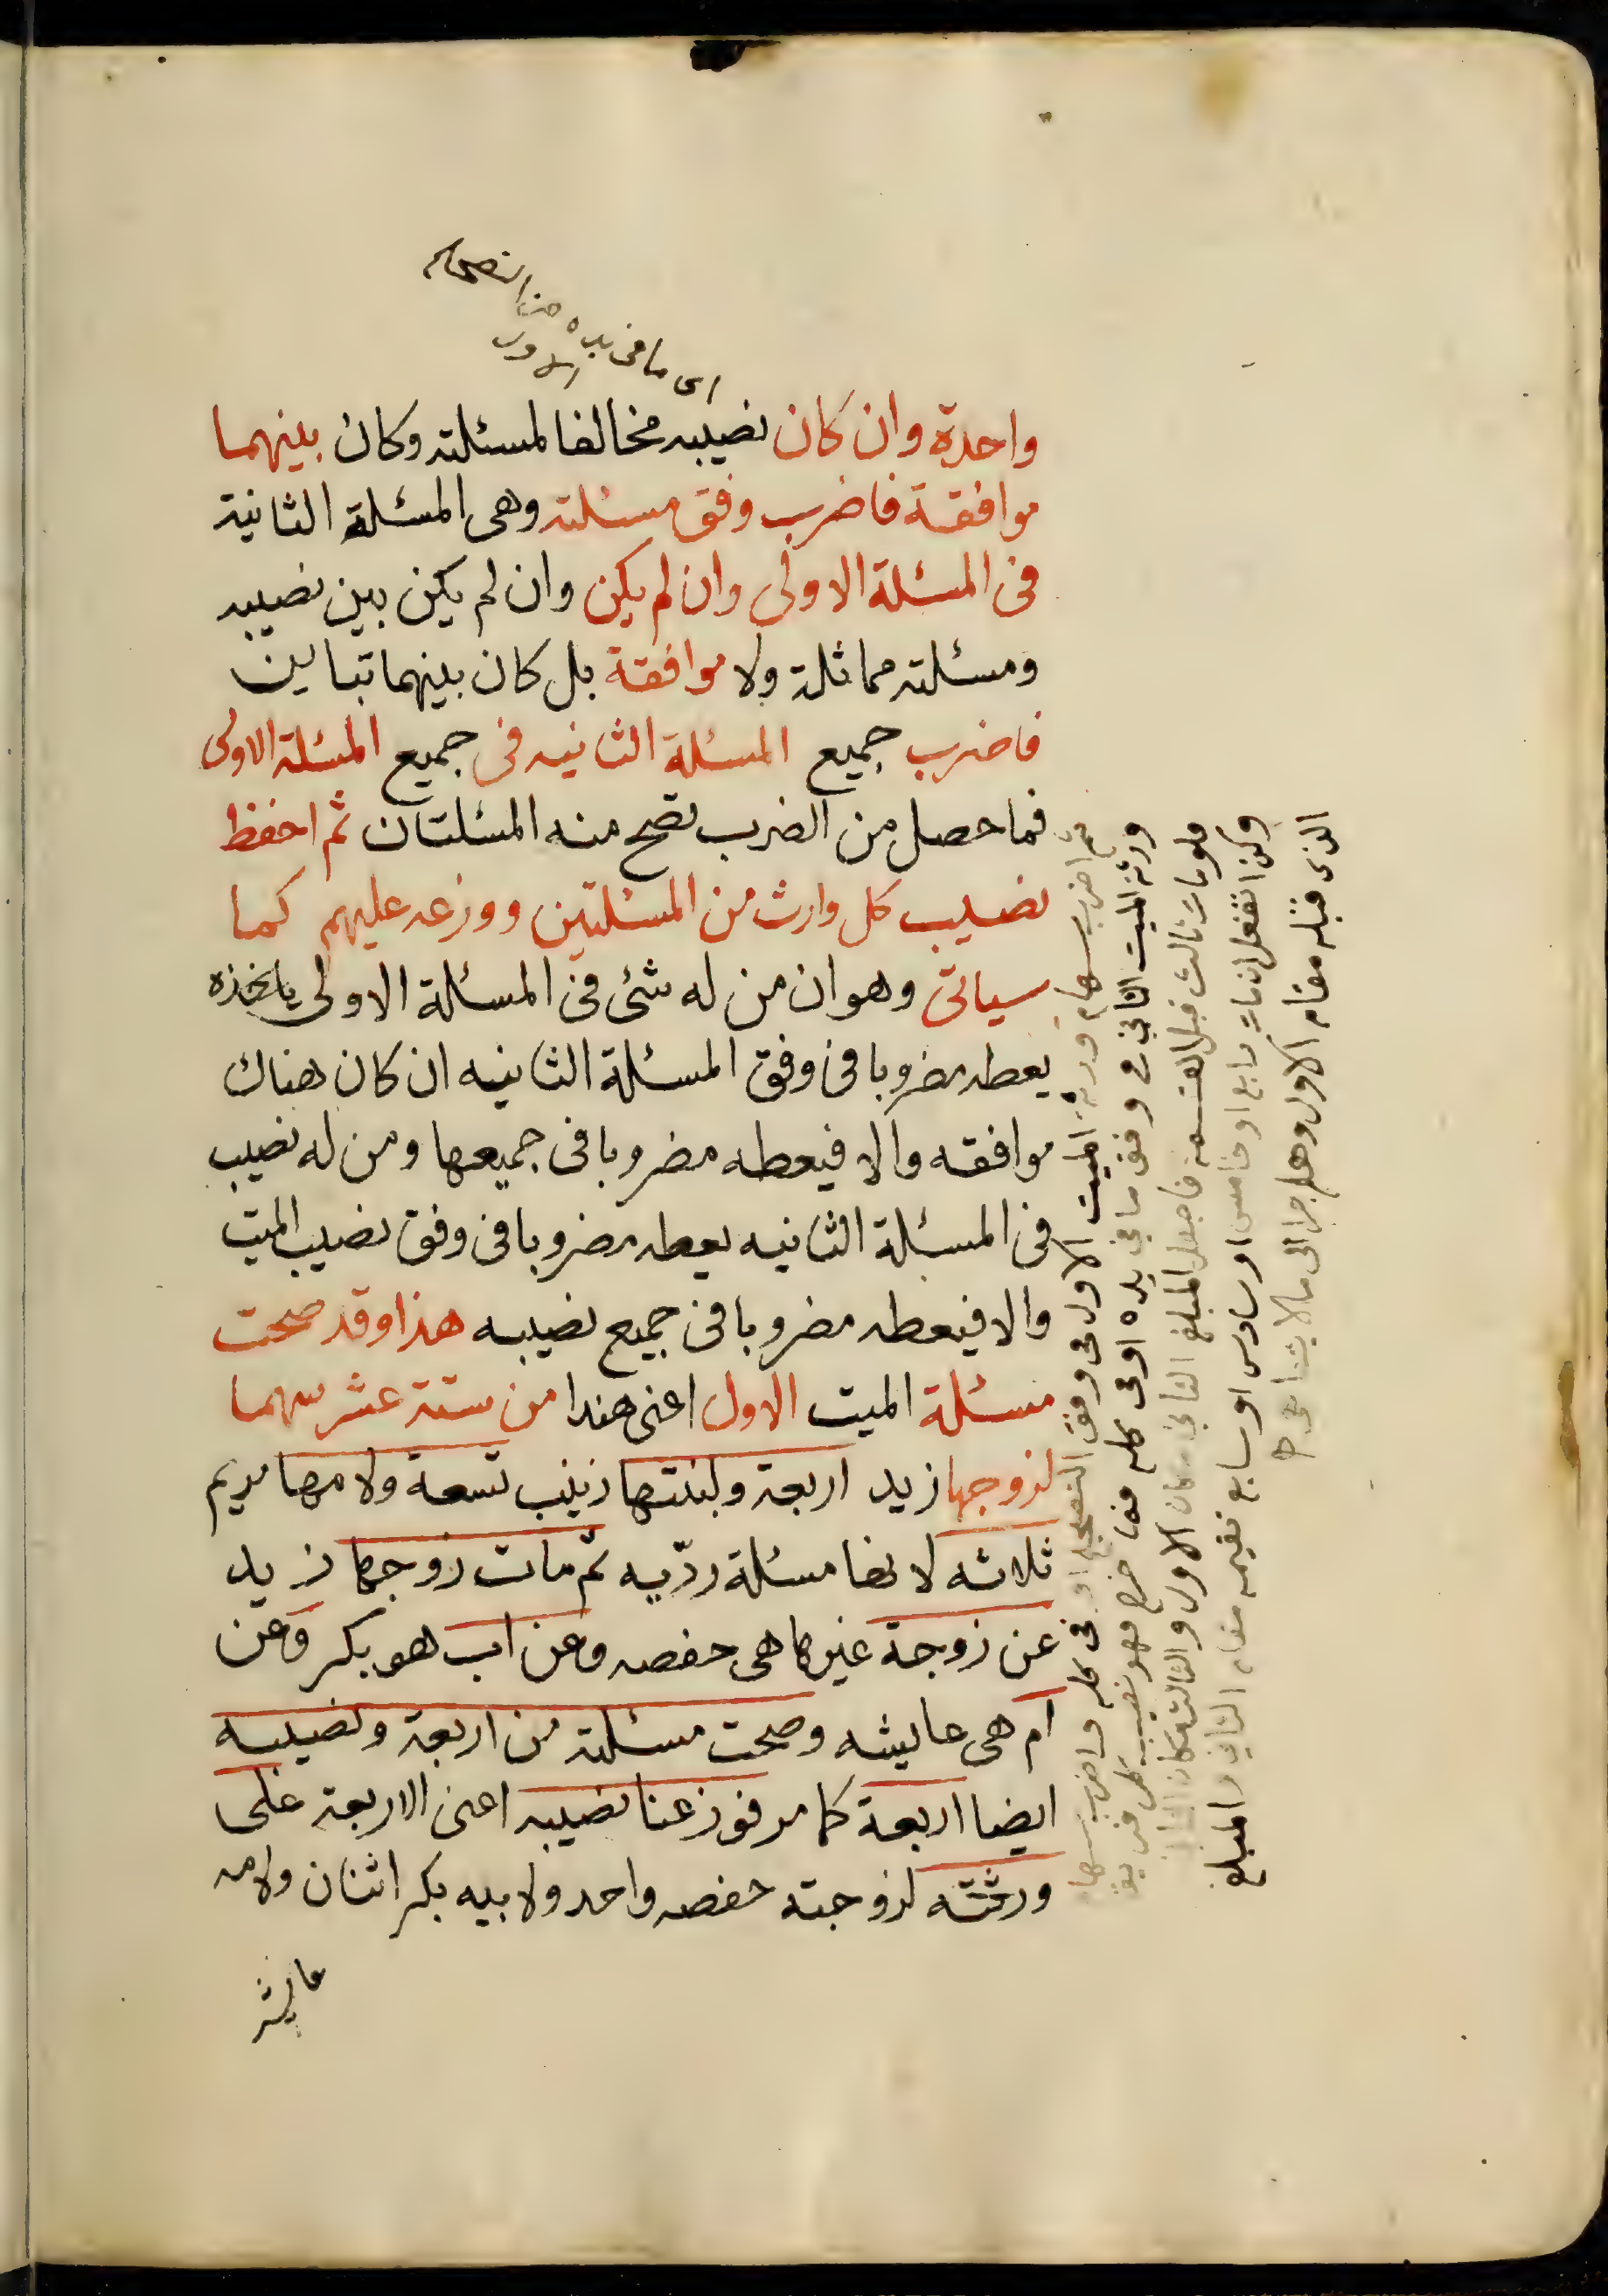 اى ما فى يده من التصحيح
الاول
واحدة وان كان نصيبه مخالفا لمسئلته وكان بينهما
موافقة فاضرب وفق مسئلته وهى المسئلة الثانية
فى المسئلة الاولى وان لم يكن وان لم يكن بين نصيبه
ومسئلته مماثلة ولا موافقة بل كان بينهما تباين
فاضرب جميع المسئلة الثانيه فى جميع المسئلة الاولى
فما حصل من الضرب تصح منه المسئلتان ثم احفظ
نصيب كل وارث من المسئلتين ووزعه عليهم كما
سياتى وهو ان من له شئ فى المسئلة الاولى ياخذه
يعطه مضروبا فى وفق المسئلة الثانيه ان كان هناك
موافقه والا فيعطه مضروبا فى جميعها ومن له نصيب
فى المسئلة الثانيه يعطه مضروبا فى وفق نصيب الميت
والا فيعطه مضروبا فى جميع نصيبه هذا وقد صحت
مسئلة الميت الاول اعنى هندا من ستة عشر سهما
لزوجها زيد اربعة ولبنتها زينب تسعة ولامها مريم
ثلاثه لانها مسئلة ردّيه ثم مات زوجها زيد
عن زوجة غيرها هى حفصه وعن اب هو بكر وعن
ام هى عايشه وصحت مسئلته من اربعة ونصيبه
ايضا اربعة كما مر فوزعنا نصيبه اعنى الاربعة على
ورثته لزوجته حفصه واحد ولابيه بكر اثنان ولامه
عايشه
ثم اضرب سهام ورثة الميت الاول فى وفق التصحيح او فى كله واضرب سهام
ورثة الميت الثانى فى وفق ما فى يده او فى كله فما خرج فهو نصيب كل فريق
فلو مات ثالث قبل القسمة فاجعل المبلغ الثانى مكان الاول والثالث مكان الثانى
وكذا تفعل ان مات رابع او خامس او سادس او سابع تقيمه مقام الثانى والمبلغ
الذى قبله مقام الاول وهلم جرا الى ما لا يتناهى